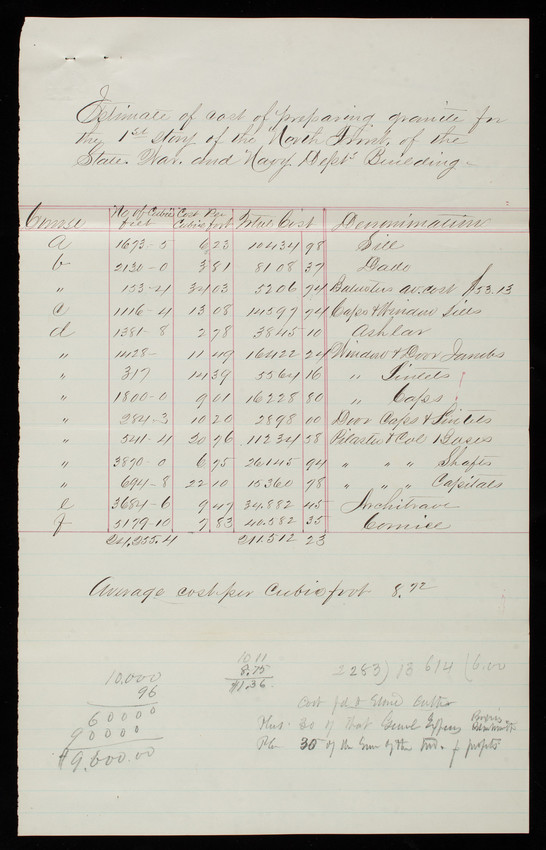 Estimate of cost of preparing granite for
the 1st story of the North Front of the
State War and Navy Depts Building
Course No. of Cubic feet Cost Per Cubic foot Total Cost Denomination
a 1673-5 6 23 10434 98 Sill
b 2130-0 3 81 8108 37 Dado
" 153-4 34 03 5206 74 Balusters av. cost $53.13
c 1116-4 13 08 14597 94 Caps & Window Sills
d 1381-8 2 78 3845 10 Ashlar
" 1428- 11 49 16422 24 Window & Door Jambs
" 317 14 39 4564 16 " Lintels
" 1800-0 9 01 16228 80 " Caps
" 284-3 10 20 2898 00 Door Caps & Lintels
" 541-4 20 76 11234 58 Pilaster & Col Bases
" 3870-0 6 75 26145 94 " " " Shafts
" 694-8 22 10 15360 78 " " " Capitals
e 3684-6 9 47 34.882 45 Architrave
f 5179-10 7 83 40.582 35 Cornice
24,255.4 211.512 23
Average cost per Cubic foot 8.72
10.000
96
60000
90000
$9,600.00
10 11
8.75
$1.36
2283) 13 614 (6.00
Cost pd to Stone Cutters
Plus 30 of that Genl Expens
Plus 30 of the Sum of the two for profits